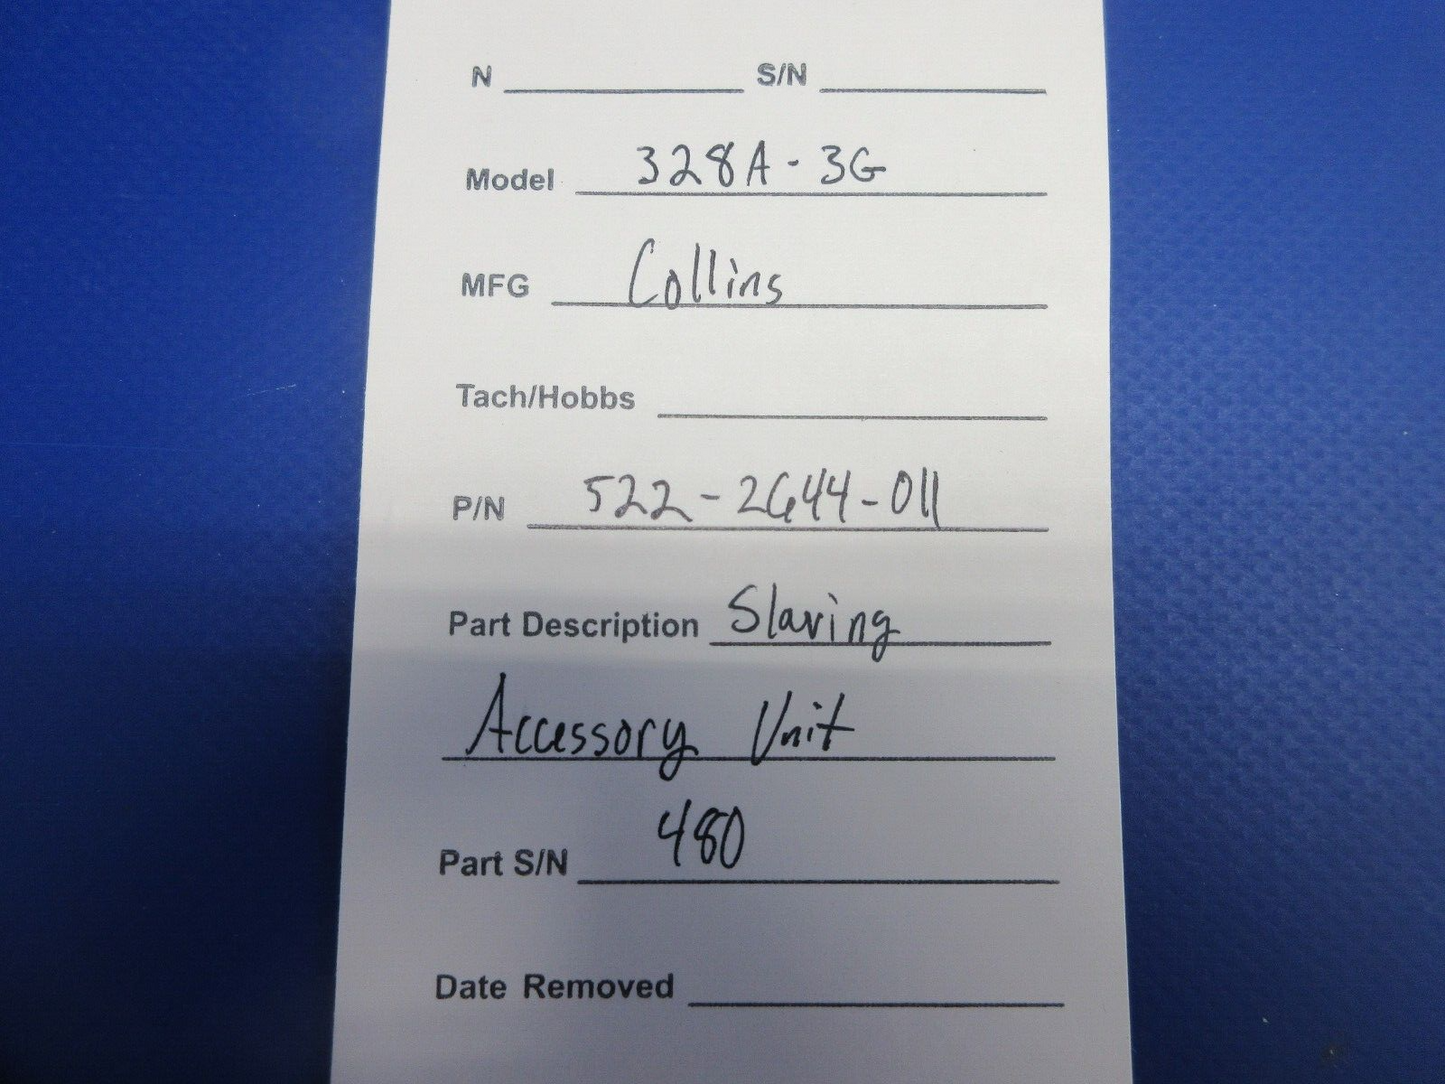 N S/N
Model 328A-3G
MFG Collins
Tach/Hobbs
P/N 522-2644-011
Part Description Slaving
Accessory Unit
Part S/N 480
Date Removed